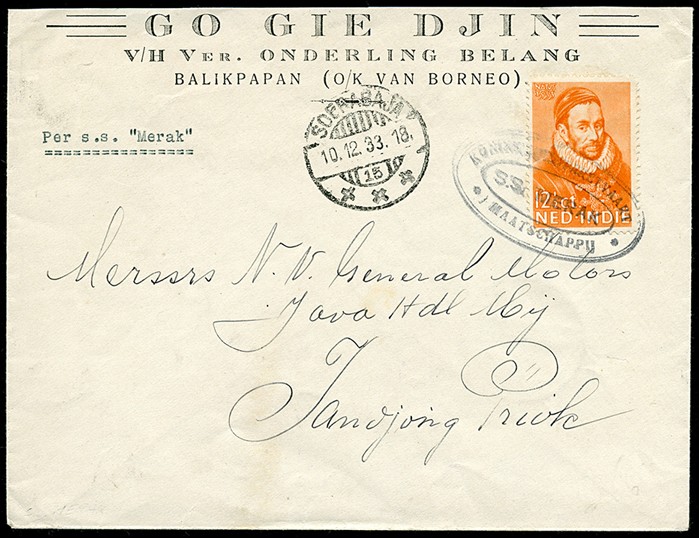 GO GIE DJIN
V/H VER. ONDERLING BELANG
BALIKPAPAN (O/K VAN BORNEO)
SOERABAJA
10.12.33.18
15
Per s.s. "Merak"
S.S.
MAATSCHAPPIJ
12½ ct
NED-INDIË
Messrs N. V. General Motors
Java Hdl Mij
Tandjong Priok